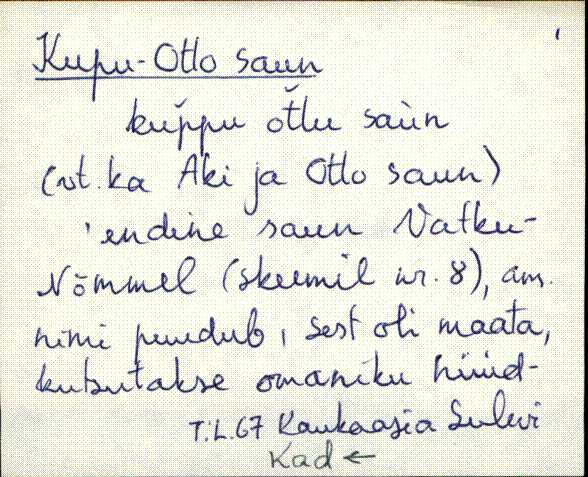 Kupu-Otto saun
kuppu ŏtlu saùn
(vt. ka Aki ja Otto saun)
'endine saun Vatku-
Nõmmel (skeemil nr. 8), am.
nimi puudub, sest oli maata,
kutsutakse omaniku hüüd-
T.L.67 Kaukaasia Sulevi
Kad ←